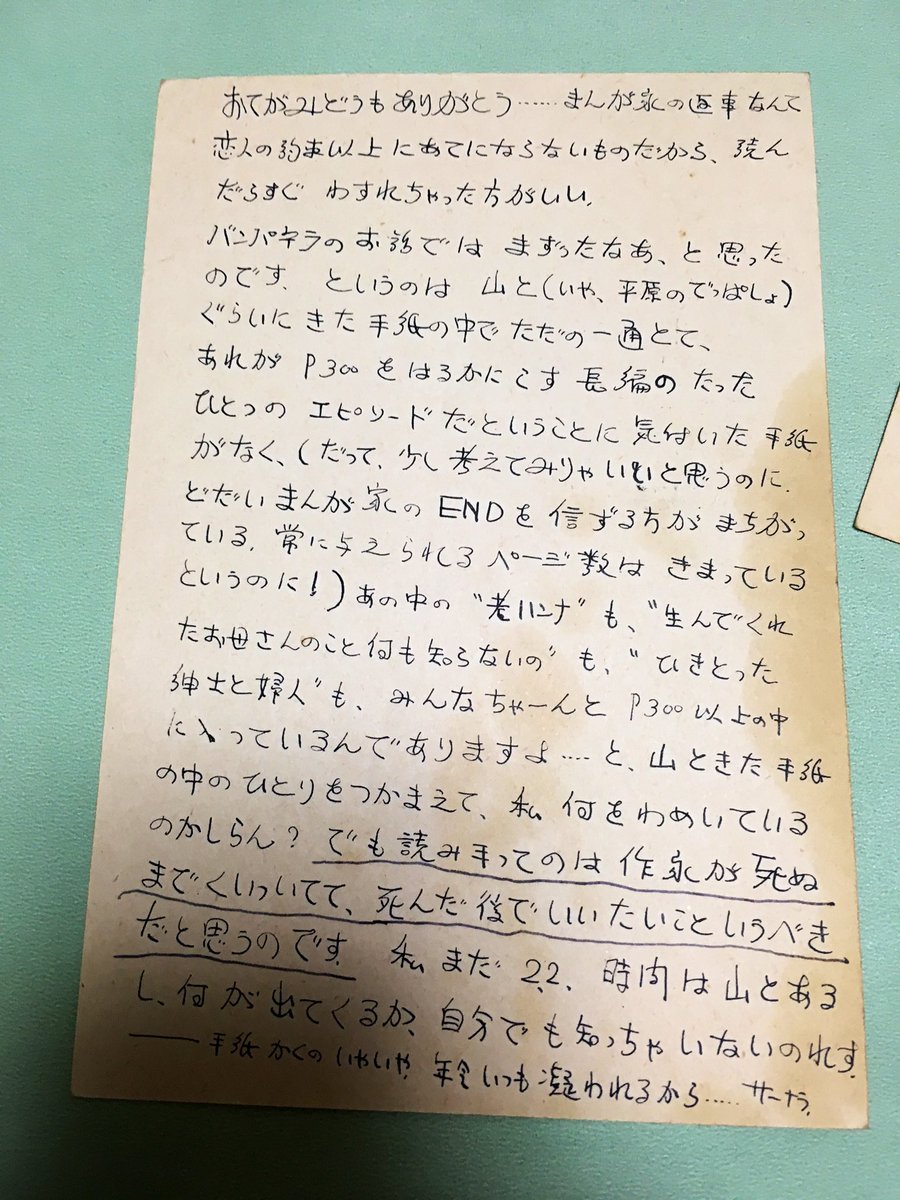 おてがみどうもありがとう……まんが家の返事なんて
恋人の約束以上にあてにならないものだから、読ん
だらすぐ わすれちゃった方がいい。
バンパネラのお話では まずったなあ、と思った
のです。というのは 山と(いや、平原のでっぱしょ)
ぐらいにきた手紙の中でただの一通とて、
あれが P300をはるかにこす長編のたった
ひとつの エピソードだということに気付いた手紙
がなく、(だって、少し考えてみりゃいいと思うのに.
どだいまんが家のENDを信ずる方がまちがっ
ている. 常に与えられるページ数は きまっている
というのに!)あの中の"老ハンナ"も、"生んでくれ
たお母さんのこと何も知らないの"も、"ひきとった
紳士と婦人"も、みんなちゃーんと P300以上の中
に入っているんでありますよ……と、山ときた手紙
の中のひとりをつかまえて、私 何をわめいている
のかしらん? でも読み手ってのは作家が死ぬ
までくいついてて、死んだ後でいいたいこというべき
だと思うのです。 私まだ 22. 時間は山とある
し、何が出てくるか、自分でも知っちゃいないのれす.
——手紙かくのいやいや. 年令いつも凝われるから…… サーナラ.